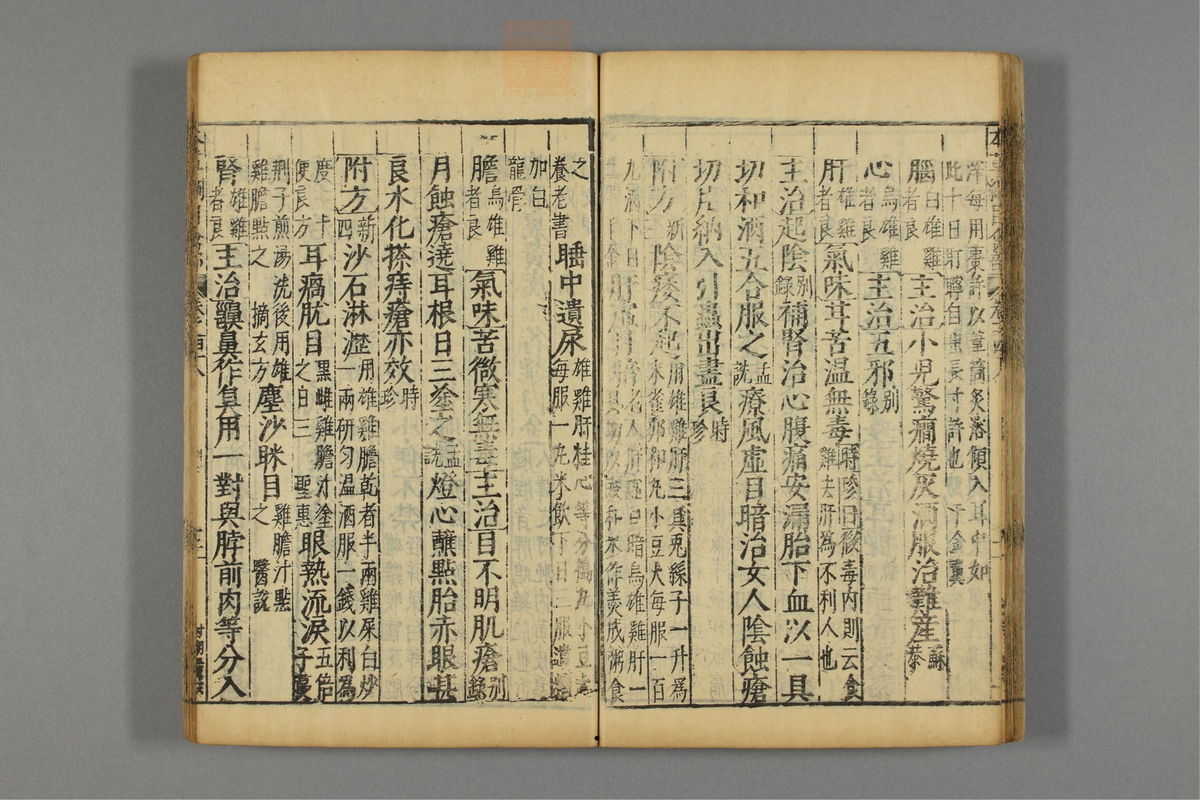 滓每用棗許以葦筒炙落傾入耳中如
此十日耵聹自出長寸許也千金翼
腦白雄雞者良主治小兒驚癇燒灰酒服治難産蘇恭
心烏雄雞者良主治五邪別錄
肝雄雞者良氣味甘苦溫無毒時珍曰微毒內則云食雞去肝為不利人也
主治起陰別錄補腎治心腹痛安漏胎下血以一具
切和酒五合服之孟詵療風虛目暗治女人陰蝕瘡
切片納入引蟲出盡良時珍
附方新陰痿不起用雄雞肝三具兔絲子一升為
末雀卵和丸小豆大每服一百
丸酒下日肝虛目暗老人肝虛目暗烏雄雞肝一
具切以豉和米作羹成粥食
之養老書睡中遺尿雄雞肝桂心等分擣丸小豆大每服一丸米飲下日三服遺
加白龍骨
膽烏雄雞者良氣味苦微寒無毒主治目不明肌瘡別錄
月蝕瘡遶耳根日三塗之孟詵燈心蘸點胎赤眼甚
良水化搽痔瘡亦效時珍
附方新四沙石淋瀝用雄雞膽乾者半兩雞屎白炒一兩研勻溫酒服一錢以利為
度十便良方耳瘑肬目黑雌雞膽汁塗之日三聖惠眼熱流淚五倍子蔓
荊子煎湯洗後用雄雞膽點之摘玄方塵沙眯目雞膽汁點之醫說
腎雄雞者良主治齆鼻作臭用一對與脖前肉等分入